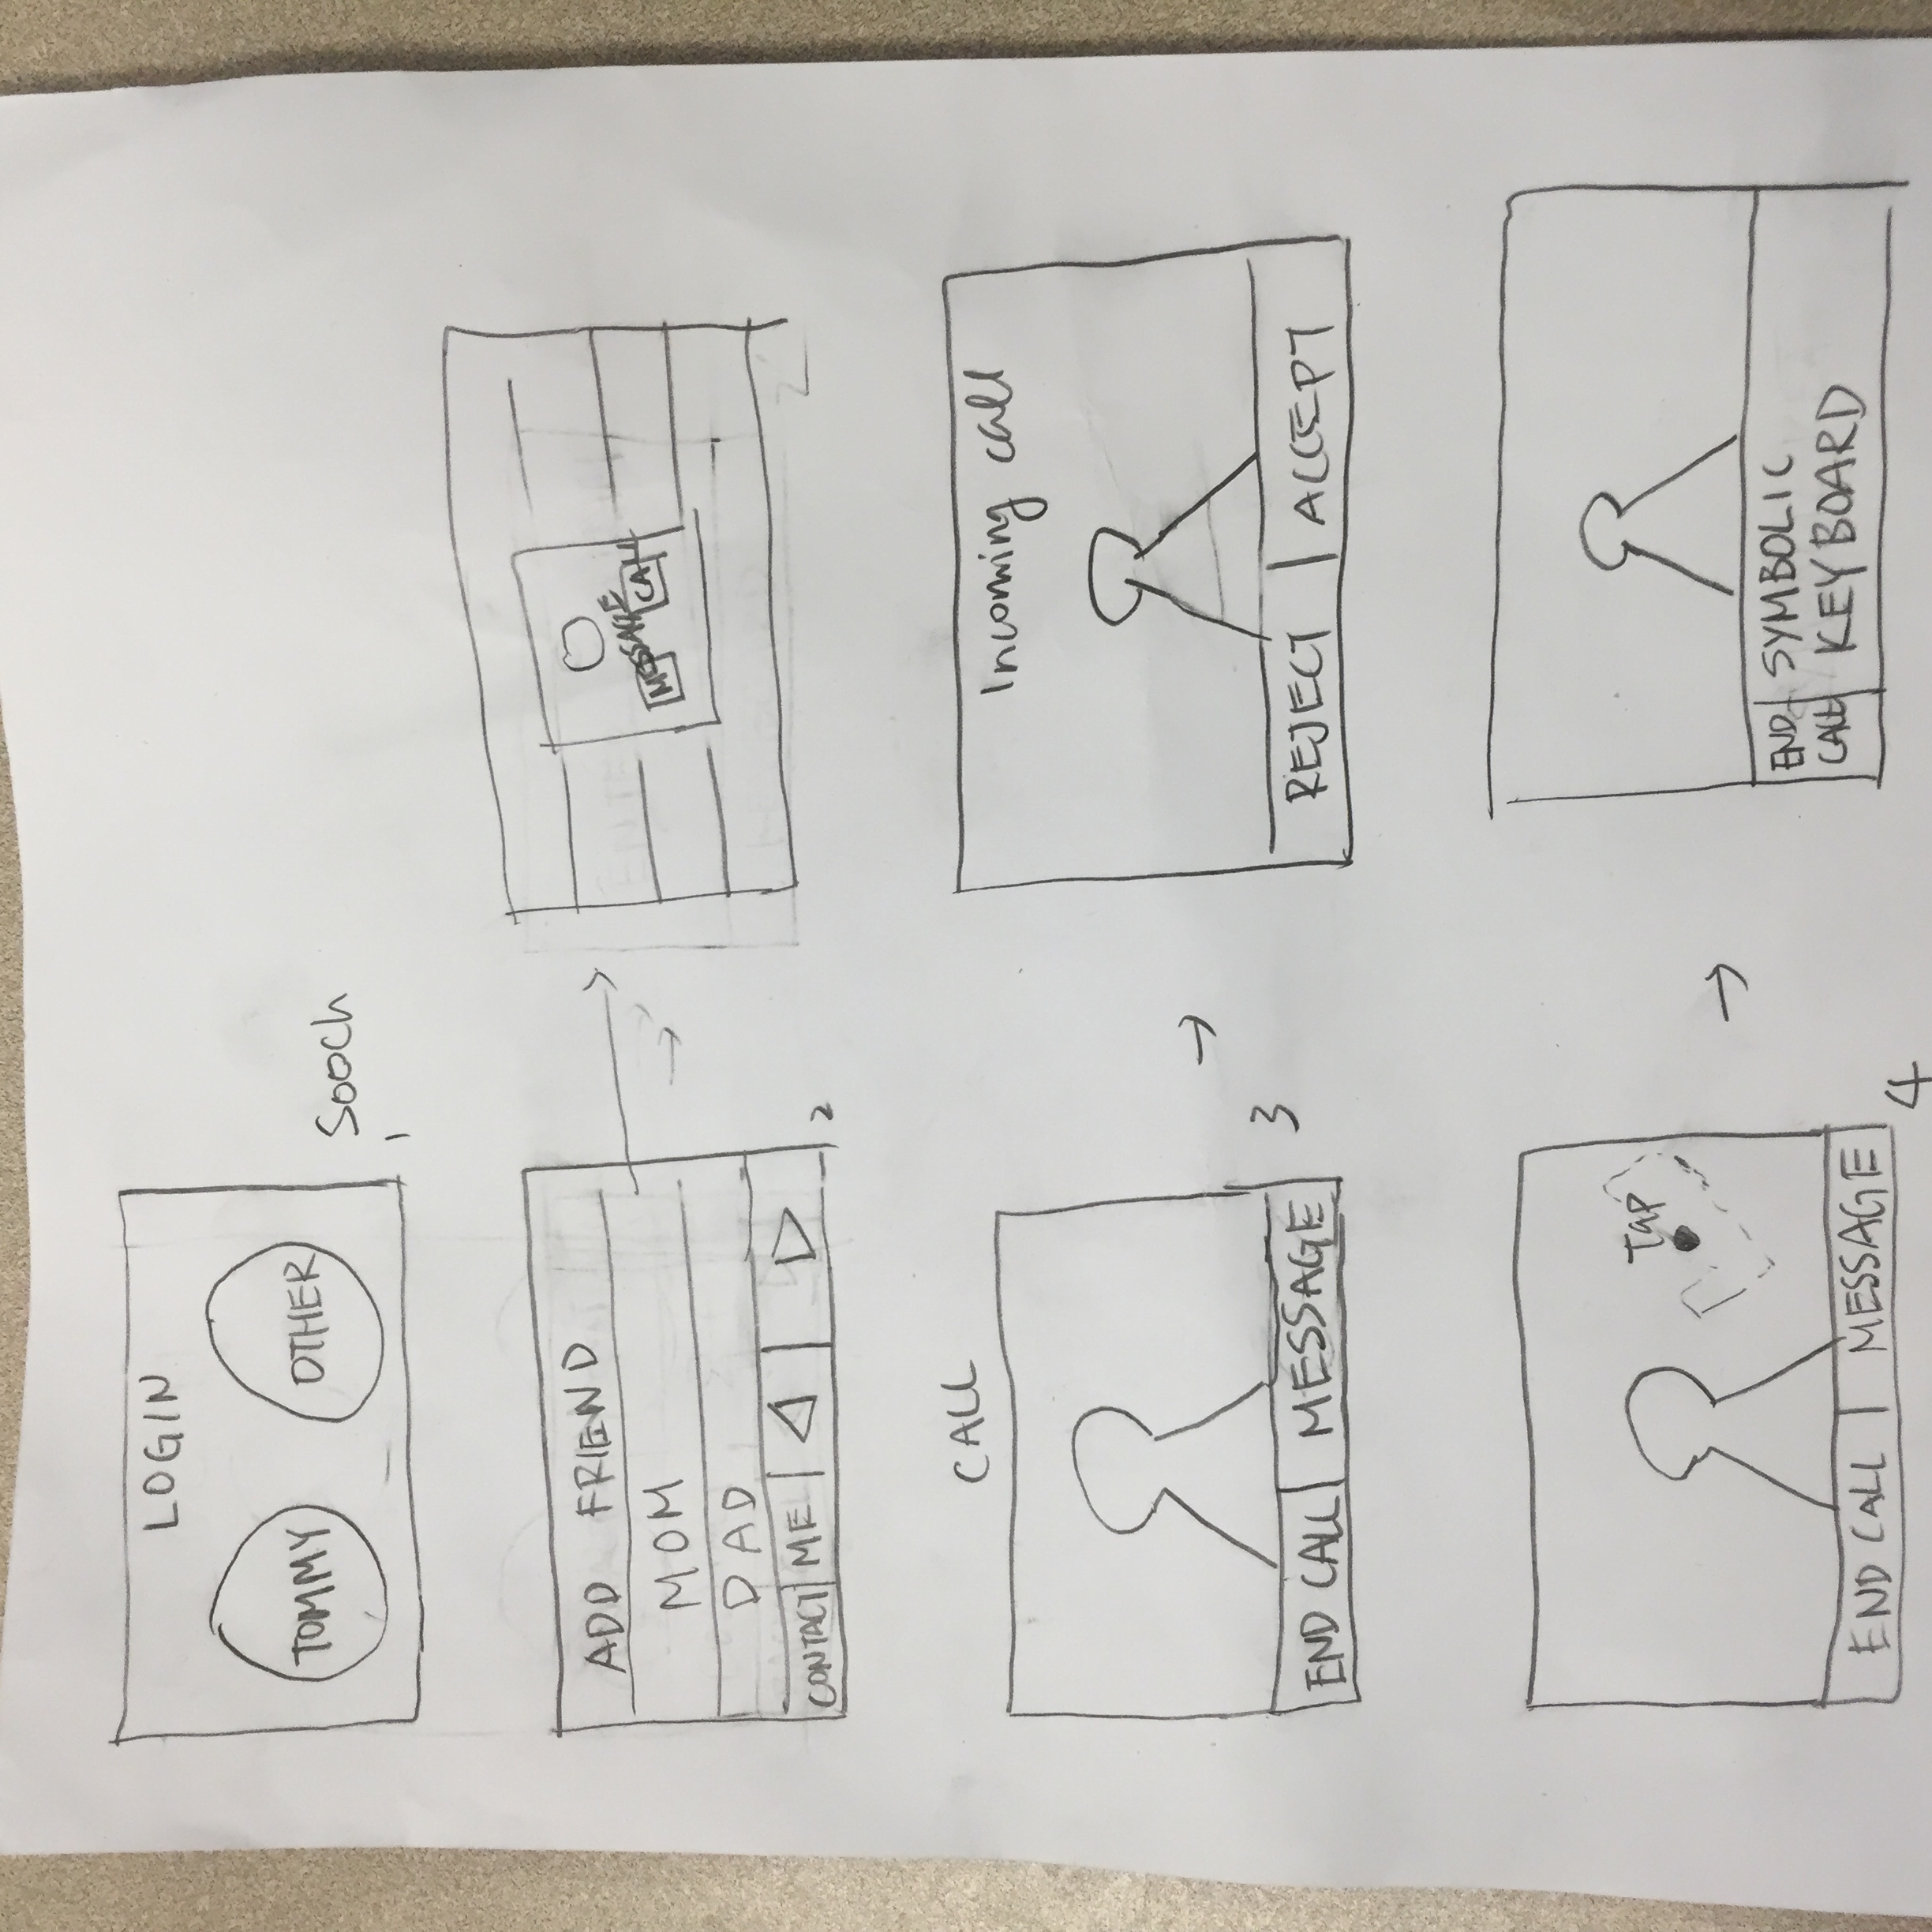 LOGIN
TOMMY
OTHER
Sooch
1
ADD FRIEND
MOM
DAD
CONTACT ME
2
MESSAGE
CALL
2'
CALL
END CALL MESSAGE
3
Incoming call
REJECT ACCEPT
Tap
END CALL MESSAGE
4
END
CALL
SYMBOLIC
KEYBOARD